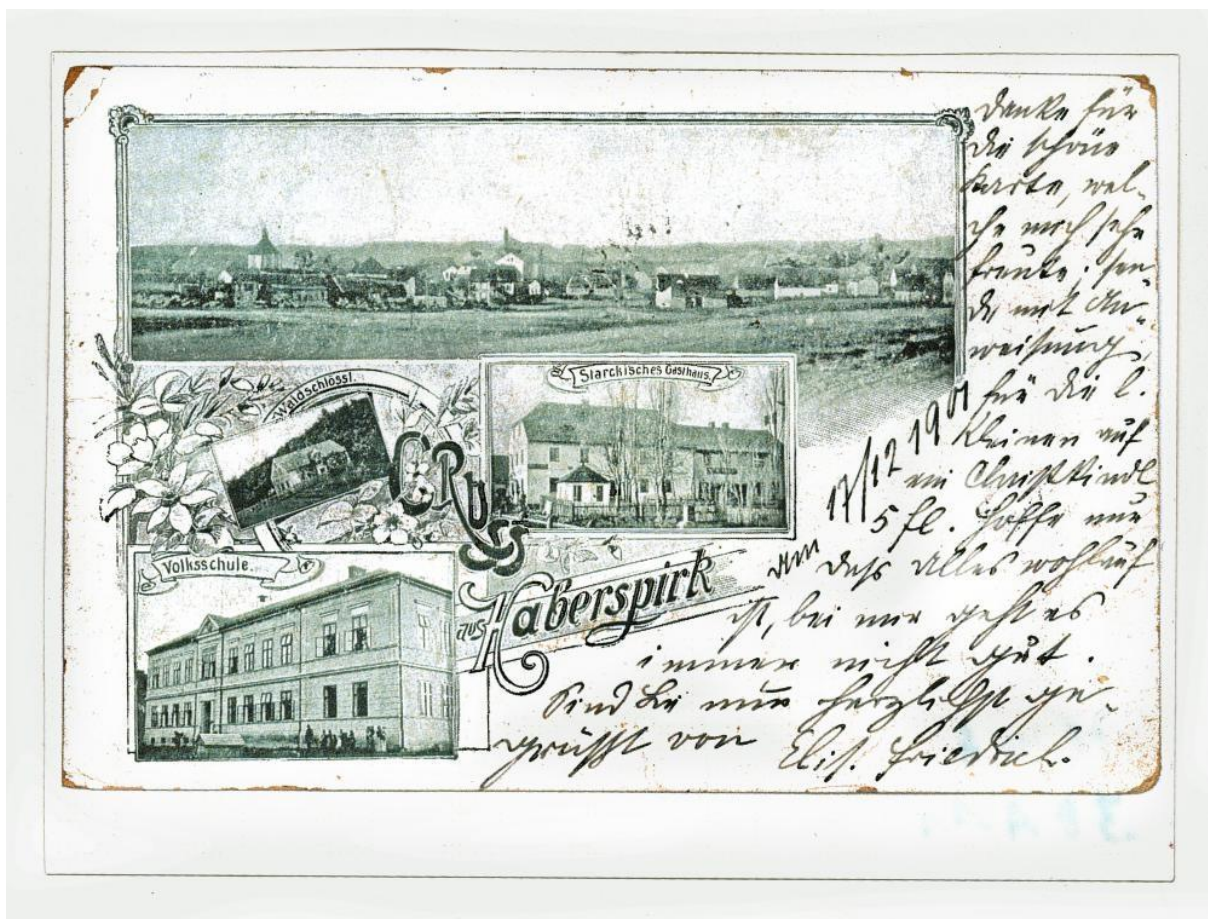 Waldschlössl.
Starckisches Gasthaus.
Volksschule.
GRUSS
aus Haberspirk
Danke für
die schöne
Karte, wel-
che mich sehr
freute. sen-
de mit An-
weisung
für die l.
Kleinen auf
ein Christkindl
5 fl. Hoffe nur
daß alles wohlauf
ist, bei mir geht es
immer nicht gut.
Sind Sie nun herzlichst ge-
grüßt von Elis. Friedrich.
am 17/12 1901